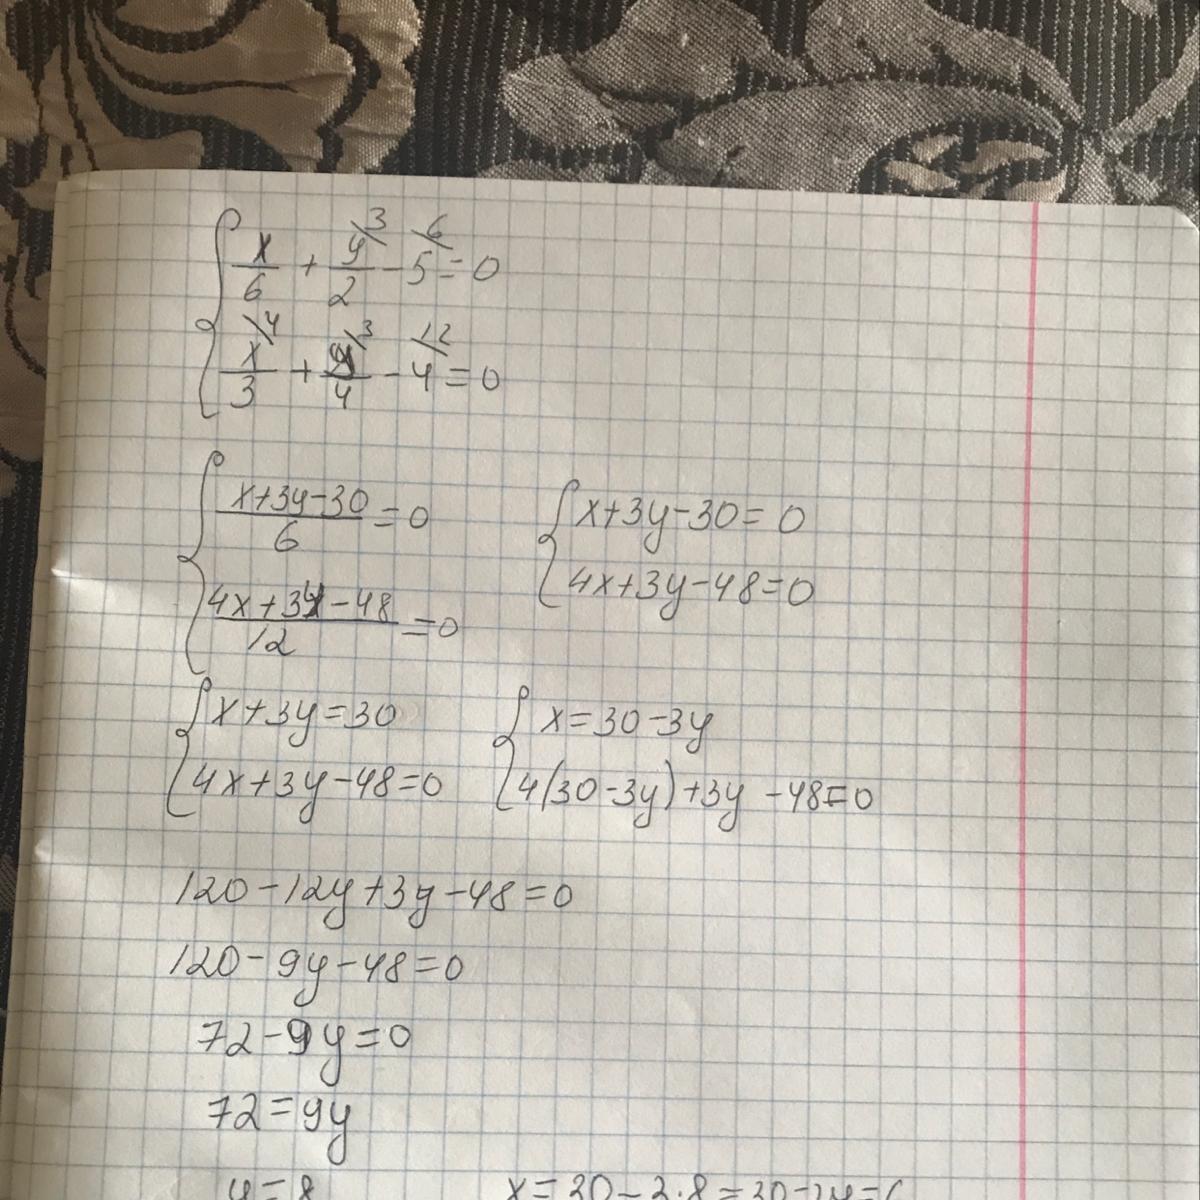 x/6 + y/2 - 5 = 0
3 6
x/3 + y/4 - 4 = 0
4 3 12
(x+3y-30)/6 = 0
(4x+3y-48)/12 = 0
x+3y-30=0
4x+3y-48=0
x+3y=30
4x+3y-48=0
x=30-3y
4(30-3y)+3y-48=0
120-12y+3y-48=0
120-9y-48=0
72-9y=0
72=9y
y=8 x=30-3·8=30-24=6